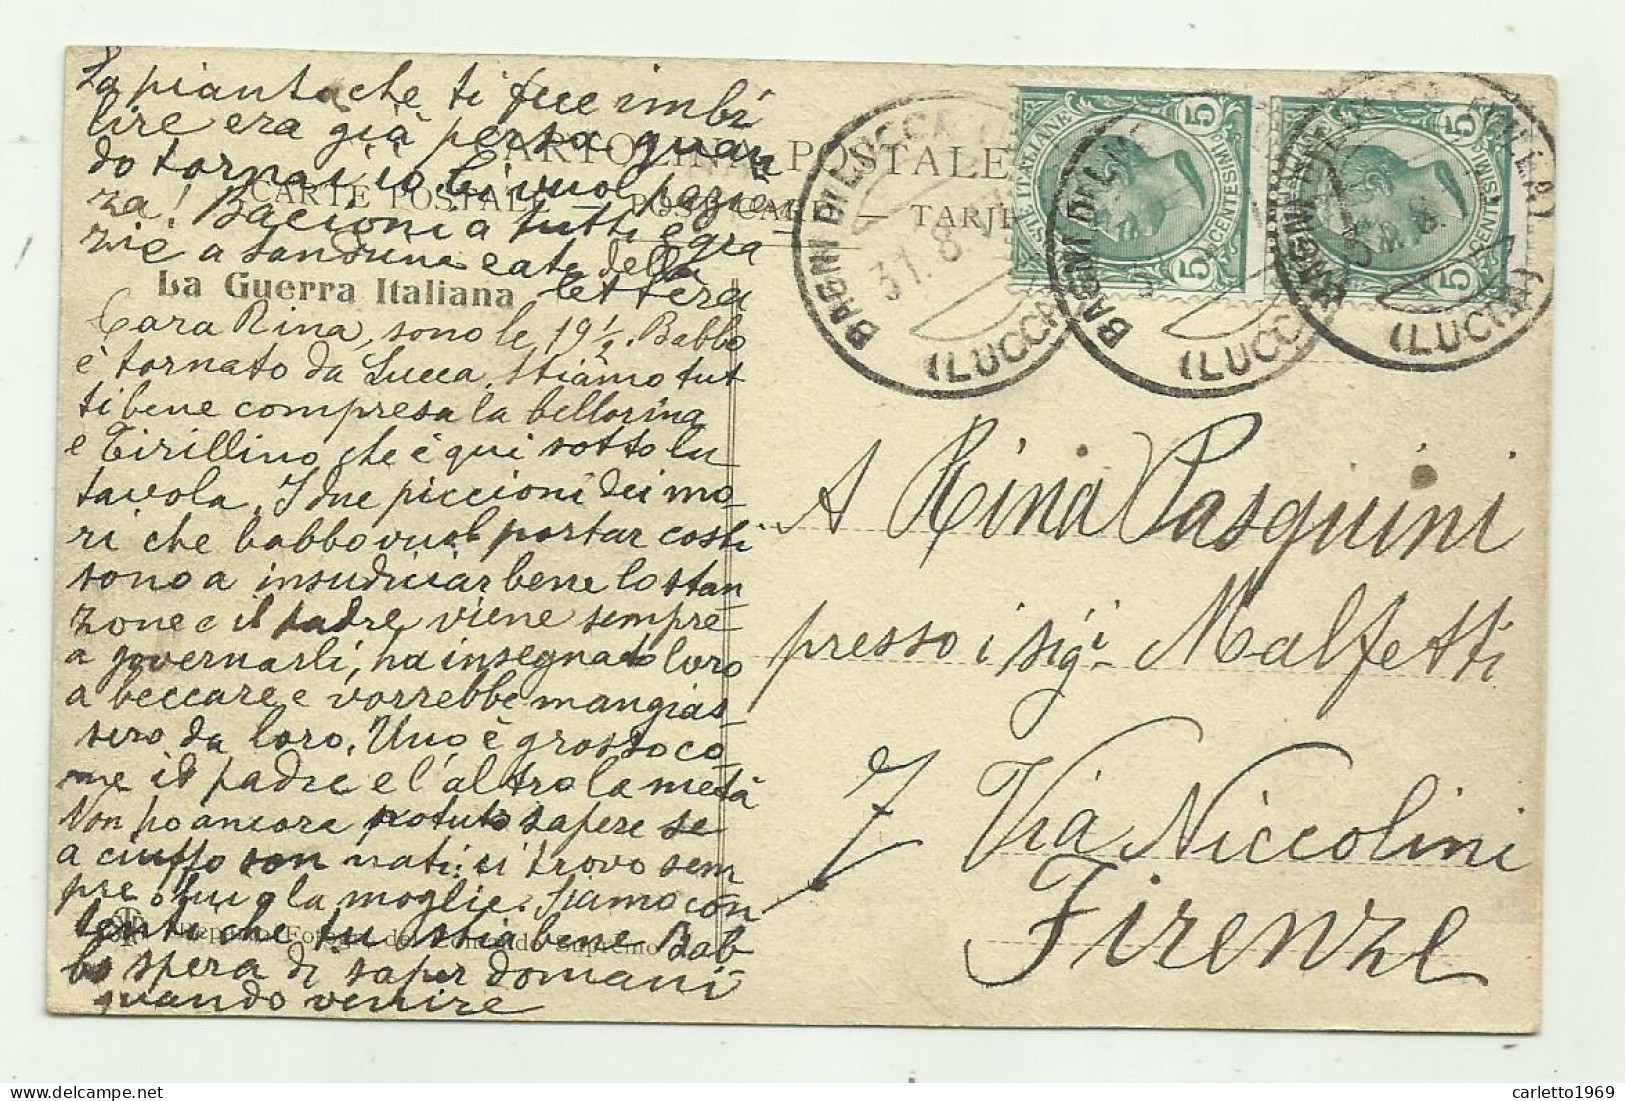 La pianta che ti fece imbi
lire era già persa quan
do tornai io. Ci vuol pazien
za! Bacioni a tutti e gra
zie a Sandrune e a te della
lettera
CARTOLINA POSTALE
CARTE POSTALE — POST CARD — TARJE
La Guerra Italiana
Cara Rina, sono le 19½. Babbo
è tornato da Lucca. Stiamo tut
ti bene compresa la bellorina
e Cirillino che è qui sotto la
tavola. I due piccioni dei mo-
ri che babbo vuol portar costì
sono a insudiciar bene lo stan
zone e il padre viene sempre
a governarli, ha insegnato loro
a beccare e vorrebbe mangias
sero da loro. Uno è grosso co
me il padre e l'altro la metà
Non ho ancora potuto sapere se
a ciuffo son nati: ci trovo sem
pre lui o la moglie. Siamo con
tenti che tu stia bene. Bab
bo spera di saper domani
quando venire
Reparto Fotogr. del Comando Supremo
BAGNI DI LUCCA
31.8.
(LUCCA)
BAGNI DI LUCCA
(LUCCA)
BAGNI DI LUCCA (VILLA)
31.8.18
(LUCCA)
POSTE ITALIANE
5 CENTESIMI 5
5 CENTESIMI 5
A Rina Pasquini
presso i sigi Malfetti
7 Via Niccolini
Firenze
carletto1969